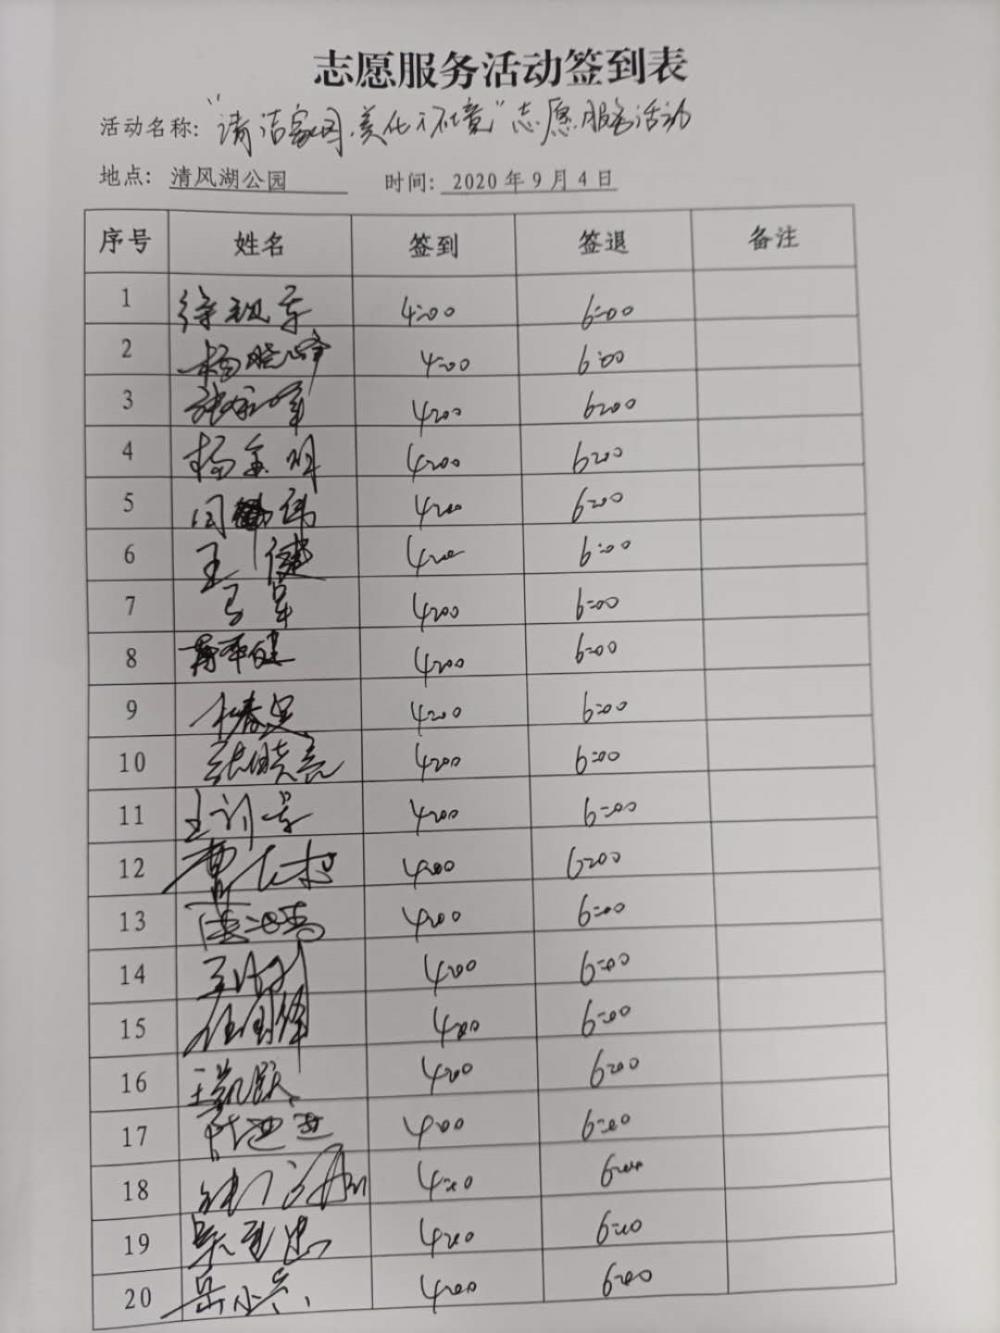 志愿服务活动签到表
活动名称: "清洁家园、美化环境"志愿服务活动
地点: 清风湖公园 时间: 2020年9月4日
序号 姓名 签到 签退 备注
1 4:00 6:00
2 杨晓峰 4:00 6:00
3 4:00 6:00
4 杨金明 4:00 6:00
5 闫 伟 4:00 6:00
6 王健 4:00 6:00
7 马军 4:00 6:00
8 4:00 6:00
9 4:00 6:00
10 张晓亮 4:00 6:00
11 王训 4:00 6:00
12 曹 4:00 6:00
13 4:00 6:00
14 4:00 6:00
15 任国锋 4:00 6:00
16 王凯跃 4:00 6:00
17 4:00 6:00
18 4:00 6:00
19 吴 忠 4:00 6:00
20 岳小兵 4:00 6:00